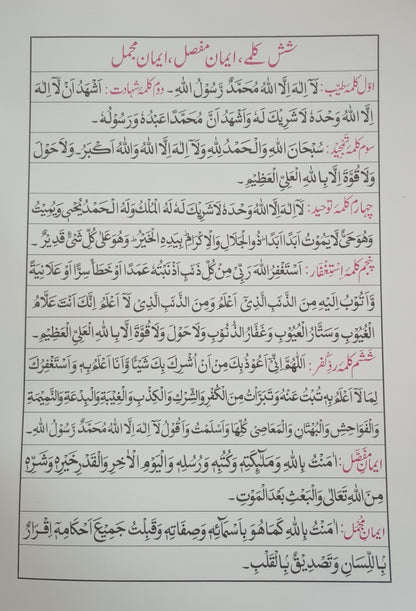 شش کلمے، ایمان مفصل، ایمان مجمل
اوّل کلمہ طیّب: لَآ اِلٰهَ اِلَّا اللهُ مُحَمَّدٌ رَّسُوْلُ اللهِ۔ دوم کلمہ شہادت: اَشْهَدُ اَنْ لَّآ اِلٰهَ
اِلَّا اللهُ وَحْدَهٗ لَا شَرِيْكَ لَهٗ وَاَشْهَدُ اَنَّ مُحَمَّدًا عَبْدُهٗ وَرَسُوْلُهٗ۔
سوم کلمہ تمجید: سُبْحَانَ اللهِ وَالْحَمْدُ لِلّٰهِ وَلَآ اِلٰهَ اِلَّا اللهُ وَاللهُ اَكْبَرُ۔ وَلَا حَوْلَ
وَلَا قُوَّةَ اِلَّا بِاللهِ الْعَلِيِّ الْعَظِيْمِ۔
چہارم کلمہ توحید: لَآ اِلٰهَ اِلَّا اللهُ وَحْدَهٗ لَا شَرِيْكَ لَهٗ لَهُ الْمُلْكُ وَلَهُ الْحَمْدُ يُحْيٖ وَيُمِيْتُ
وَهُوَ حَيٌّ لَّا يَمُوْتُ اَبَدًا اَبَدًا ؕ ذُو الْجَلَالِ وَالْاِكْرَامِ ؕ بِيَدِهِ الْخَيْرُ ؕ وَهُوَ عَلٰى كُلِّ شَيْءٍ قَدِيْرٌ۔
پنجم کلمہ استغفار: اَسْتَغْفِرُ اللهَ رَبِّيْ مِنْ كُلِّ ذَنْبٍ اَذْنَبْتُهٗ عَمَدًا اَوْ خَطَأً سِرًّا اَوْ عَلَانِيَةً
وَّاَتُوْبُ اِلَيْهِ مِنَ الذَّنْبِ الَّذِيْٓ اَعْلَمُ وَمِنَ الذَّنْبِ الَّذِيْ لَآ اَعْلَمُ اِنَّكَ اَنْتَ عَلَّامُ
الْغُيُوْبِ وَسَتَّارُ الْعُيُوْبِ وَغَفَّارُ الذُّنُوْبِ وَلَا حَوْلَ وَلَا قُوَّةَ اِلَّا بِاللهِ الْعَلِيِّ الْعَظِيْمِ۔
ششم کلمہ ردِّ کفر: اَللّٰهُمَّ اِنِّيْٓ اَعُوْذُ بِكَ مِنْ اَنْ اُشْرِكَ بِكَ شَيْئًا وَّاَنَا اَعْلَمُ بِهٖ وَاَسْتَغْفِرُكَ
لِمَا لَآ اَعْلَمُ بِهٖ تُبْتُ عَنْهُ وَتَبَرَّأْتُ مِنَ الْكُفْرِ وَالشِّرْكِ وَالْكِذْبِ وَالْغِيْبَةِ وَالْبِدْعَةِ وَالنَّمِيْمَةِ
وَالْفَوَاحِشِ وَالْبُهْتَانِ وَالْمَعَاصِيْ كُلِّهَا وَاَسْلَمْتُ وَاَقُوْلُ لَآ اِلٰهَ اِلَّا اللهُ مُحَمَّدٌ رَّسُوْلُ اللهِ۔
ایمان مفصّل: اٰمَنْتُ بِاللهِ وَمَلٰٓئِكَتِهٖ وَكُتُبِهٖ وَرُسُلِهٖ وَالْيَوْمِ الْاٰخِرِ وَالْقَدْرِ خَيْرِهٖ وَشَرِّهٖ
مِنَ اللهِ تَعَالٰى وَالْبَعْثِ بَعْدَ الْمَوْتِ۔
ایمان مجمل: اٰمَنْتُ بِاللهِ كَمَا هُوَ بِاَسْمَآئِهٖ وَصِفَاتِهٖ وَقَبِلْتُ جَمِيْعَ اَحْكَامِهٖ اِقْرَارٌ
بِاللِّسَانِ وَتَصْدِيْقٌ بِالْقَلْبِ۔